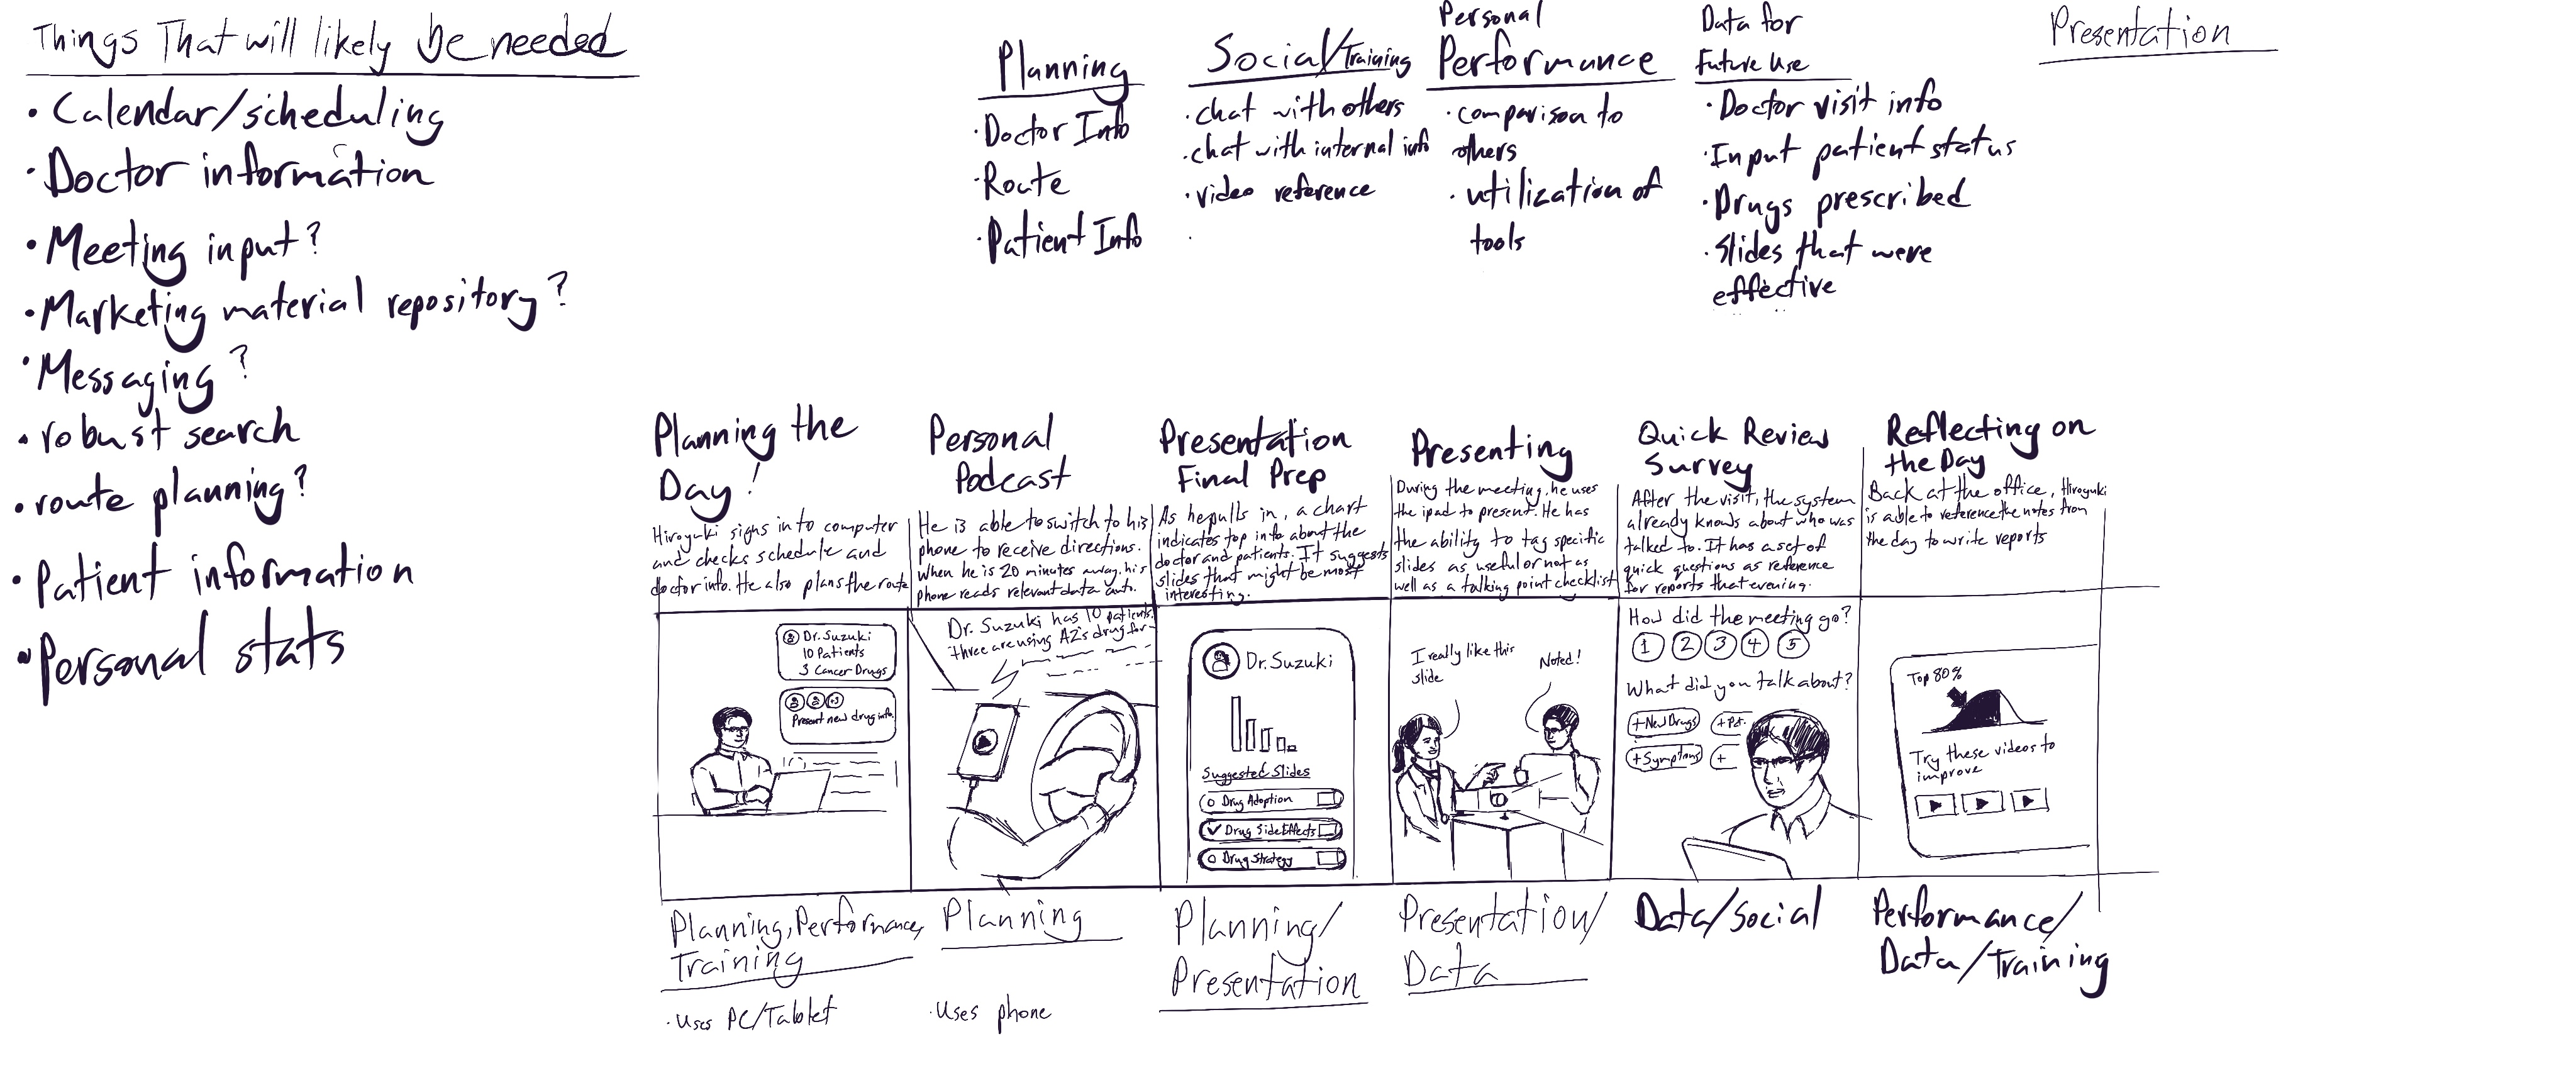 Things That will likely be needed
• Calendar/scheduling
• Doctor information
• Meeting input?
• Marketing material repository?
• Messaging?
• robust search
• route planning?
• Patient information
• Personal stats
Planning
• Doctor Info
• Route
• Patient Info
Social/Training
• chat with others
• chat with internal info
• video reference
Personal
Performance
• comparison to
others
• utilization of
tools
Data for
Future Use
• Doctor visit info
• Input patient status
• Drugs prescribed
• Slides that were
effective
Presentation
Planning the
Day!
Hiroyuki signs into computer
and checks schedule and
doctor info. He also plans the route
Dr. Suzuki
10 Patients
3 Cancer Drugs
+3
Present new drug info.
Planning, Performance,
Training
• Uses PC/Tablet
Personal
Podcast
He is able to switch to his
phone to receive directions.
When he is 20 minutes away, his
phone reads relevant data auto.
Dr. Suzuki has 10 patients.
three are using AZ's drug for
Planning
• Uses phone
Presentation
Final Prep
As he pulls in, a chart
indicates top info about the
doctor and patients. It suggests
slides that might be most
interesting.
Dr. Suzuki
Suggested Slides
Drug Adoption
Drug Side Effects
Drug Strategy
Planning/
Presentation
Presenting
During the meeting, he uses
the ipad to present. He has
the ability to tag specific
slides as useful or not as
well as a talking point checklist
I really like this
slide
Noted!
Presentation/
Data
Quick Review
Survey
After the visit, the system
already knows about who was
talked to. It has a set of
quick questions as reference
for reports that evening.
How did the meeting go?
1 2 3 4 5
What did you talk about?
+New Drugs +Pt.
+Symptoms +
Data/Social
Reflecting on
the Day
Back at the office, Hiroyuki
is able to reference the notes from
the day to write reports
Top 80%
Try these videos to
improve
Performance/
Data/Training